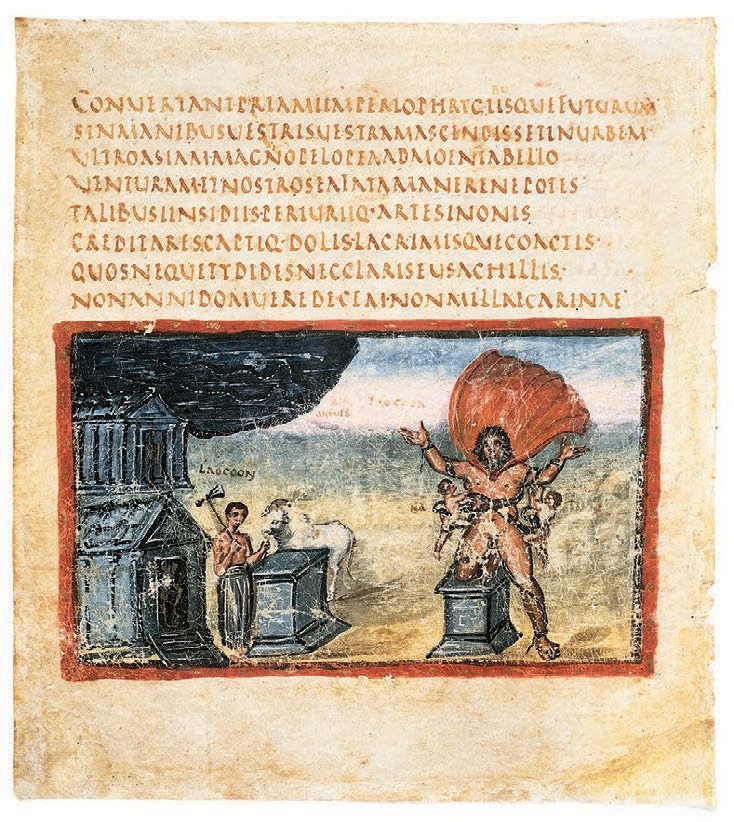 BU
CONVERTANTPRIAMIIMPERIOPHRYGIISQUEFUTURUM
SINMANIBUSVESTRISVESTRAMASCENDISSETINURBEM
ULTROASIAMMAGNOPELOPEAADMOENIABELLO
VENTURAM·ETNOSTROSEAFATAMANERENEPOTES
TALIBUSINSIDIIS·PERIURIIQ·ARTESINONIS
CREDITARES·CAPTIQ·DOLIS·LACRIMISQUECOACTIS·
QUOSNEQUETYDIDESNECCLARISEUSACHILLIS·
NONANNIDOMUEREDECEM·NONMILLECARINAE
LAOCOON
ANGUES
LAOCOON